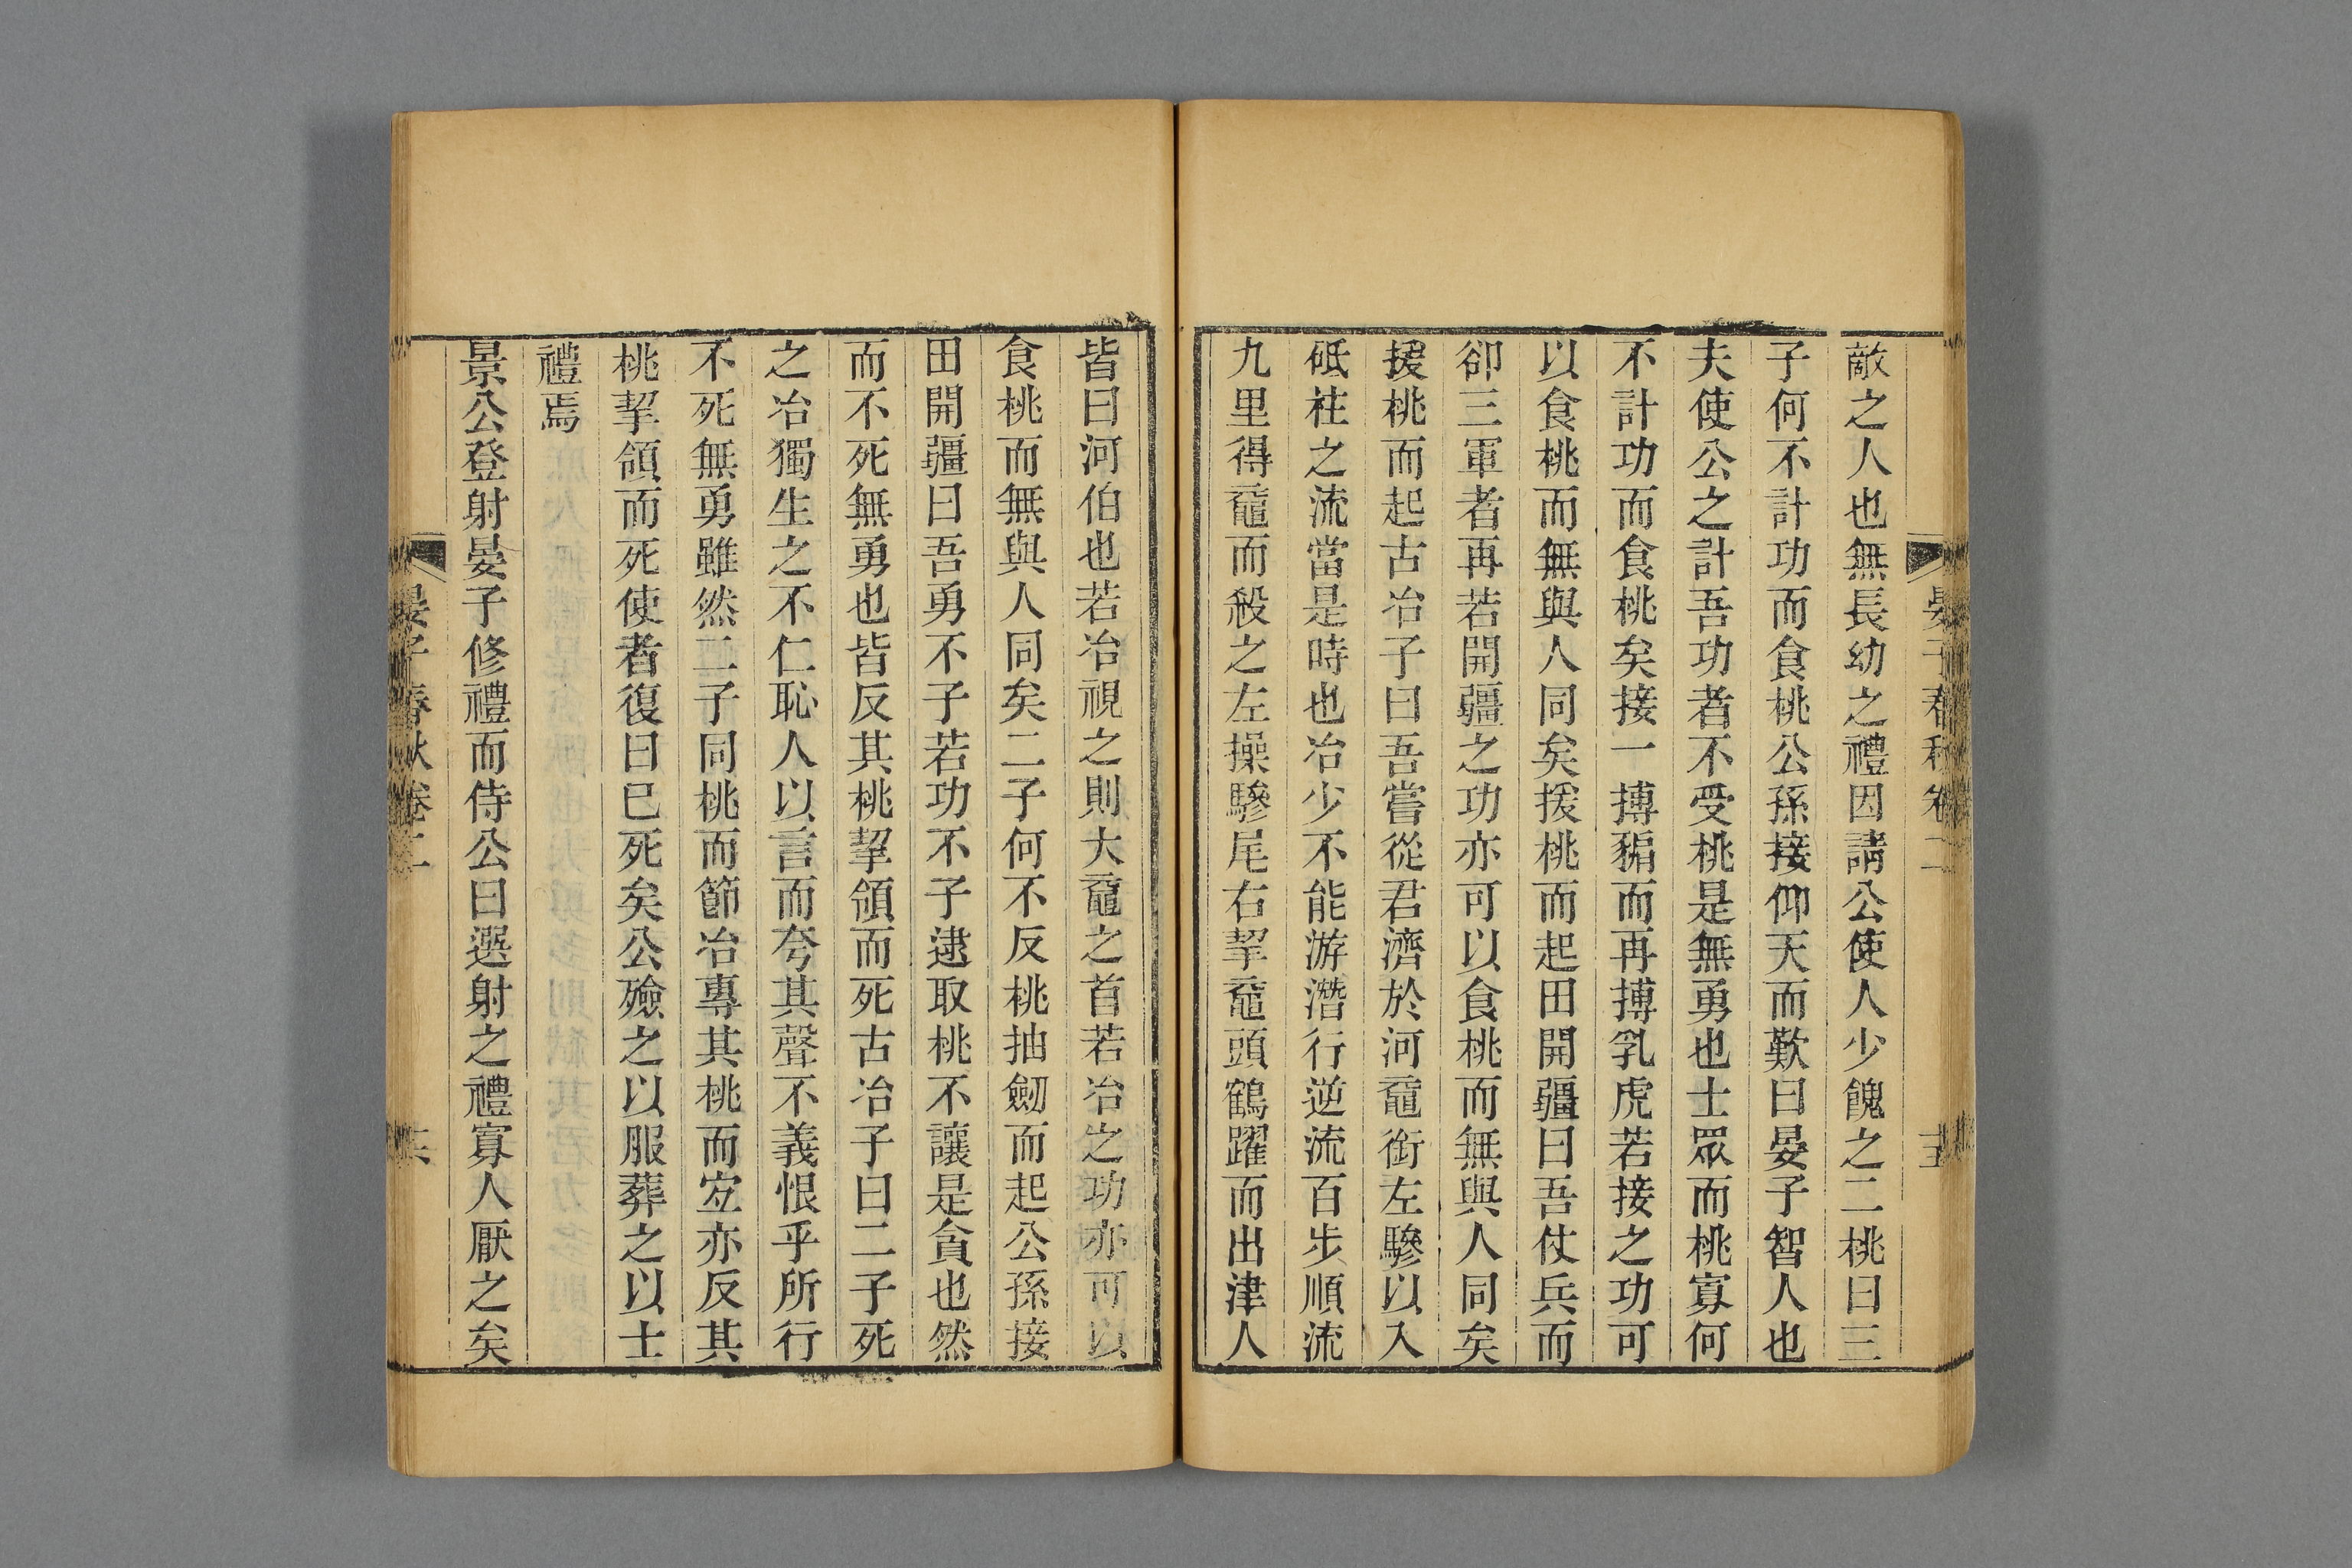 晏子春秋卷二
十五
敵之人也無長幼之禮因請公使人少餽之二桃曰三
子何不計功而食桃公孫接仰天而歎曰晏子智人也
夫使公之計吾功者不受桃是無勇也士眾而桃寡何
不計功而食桃矣接一搏猏而再搏乳虎若接之功可
以食桃而無與人同矣援桃而起田開疆曰吾仗兵而
卻三軍者再若開疆之功亦可以食桃而無與人同矣
援桃而起古冶子曰吾嘗從君濟於河黿銜左驂以入
砥柱之流當是時也冶少不能游潛行逆流百步順流
九里得黿而殺之左操驂尾右挈黿頭鶴躍而出津人
皆曰河伯也若冶視之則大黿之首若冶之功亦可以
食桃而無與人同矣二子何不反桃抽劒而起公孫接
田開疆曰吾勇不子若功不子逮取桃不讓是貪也然
而不死無勇也皆反其桃挈領而死古冶子曰二子死
之冶獨生之不仁恥人以言而夸其聲不義恨乎所行
不死無勇雖然二子同桃而節冶專其桃而宜亦反其
桃挈領而死使者復曰已死矣公殮之以服葬之以士
禮焉
景公登射晏子修禮而侍公曰選射之禮寡人厭之矣
晏子春秋卷二